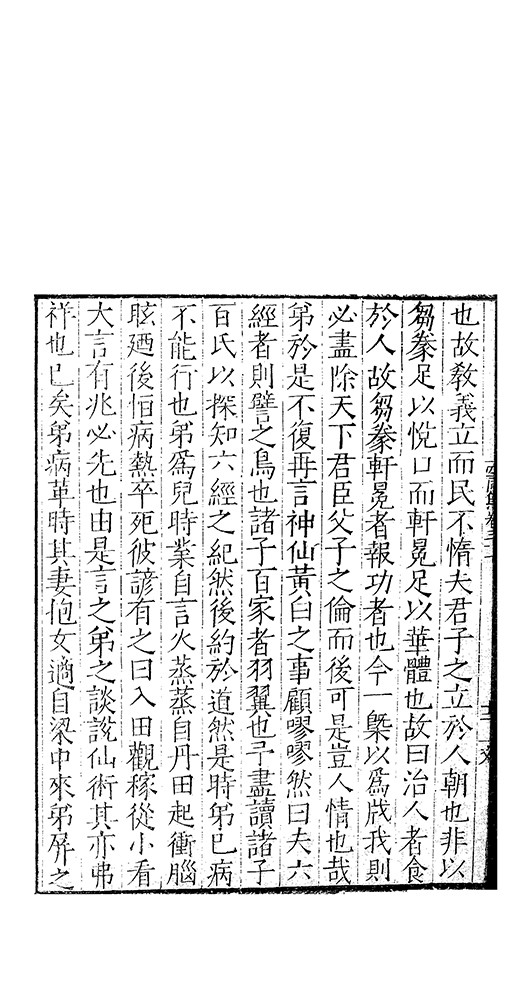 也故敎義立而民不惰夫君子之立於人朝也非以
芻豢足以悅口而軒冕足以華體也故曰治人者食
於人故芻豢軒冕者報功者也今一槩以爲戕我則
必盡除天下君臣父子之倫而後可是豈人情也哉
弟於是不復再言神仙黃白之事顧嘐嘐然曰夫六
經者則譬之鳥也諸子百家者羽翼也予盡讀諸子
百氏以探知六經之紀然後約於道然是時弟已病
不能行也弟爲兒時業自言火蒸蒸自丹田起衝腦
眩廼後怕病熱卒死彼諺有之曰入田觀稼從小看
大言有兆必先也由是言之弟之談說仙術其亦弗
祥也已矣弟病革時其妻佨女適自梁中來弟屏之